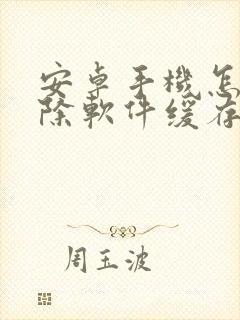 安卓手機怎
除軟件缓存
周玉波